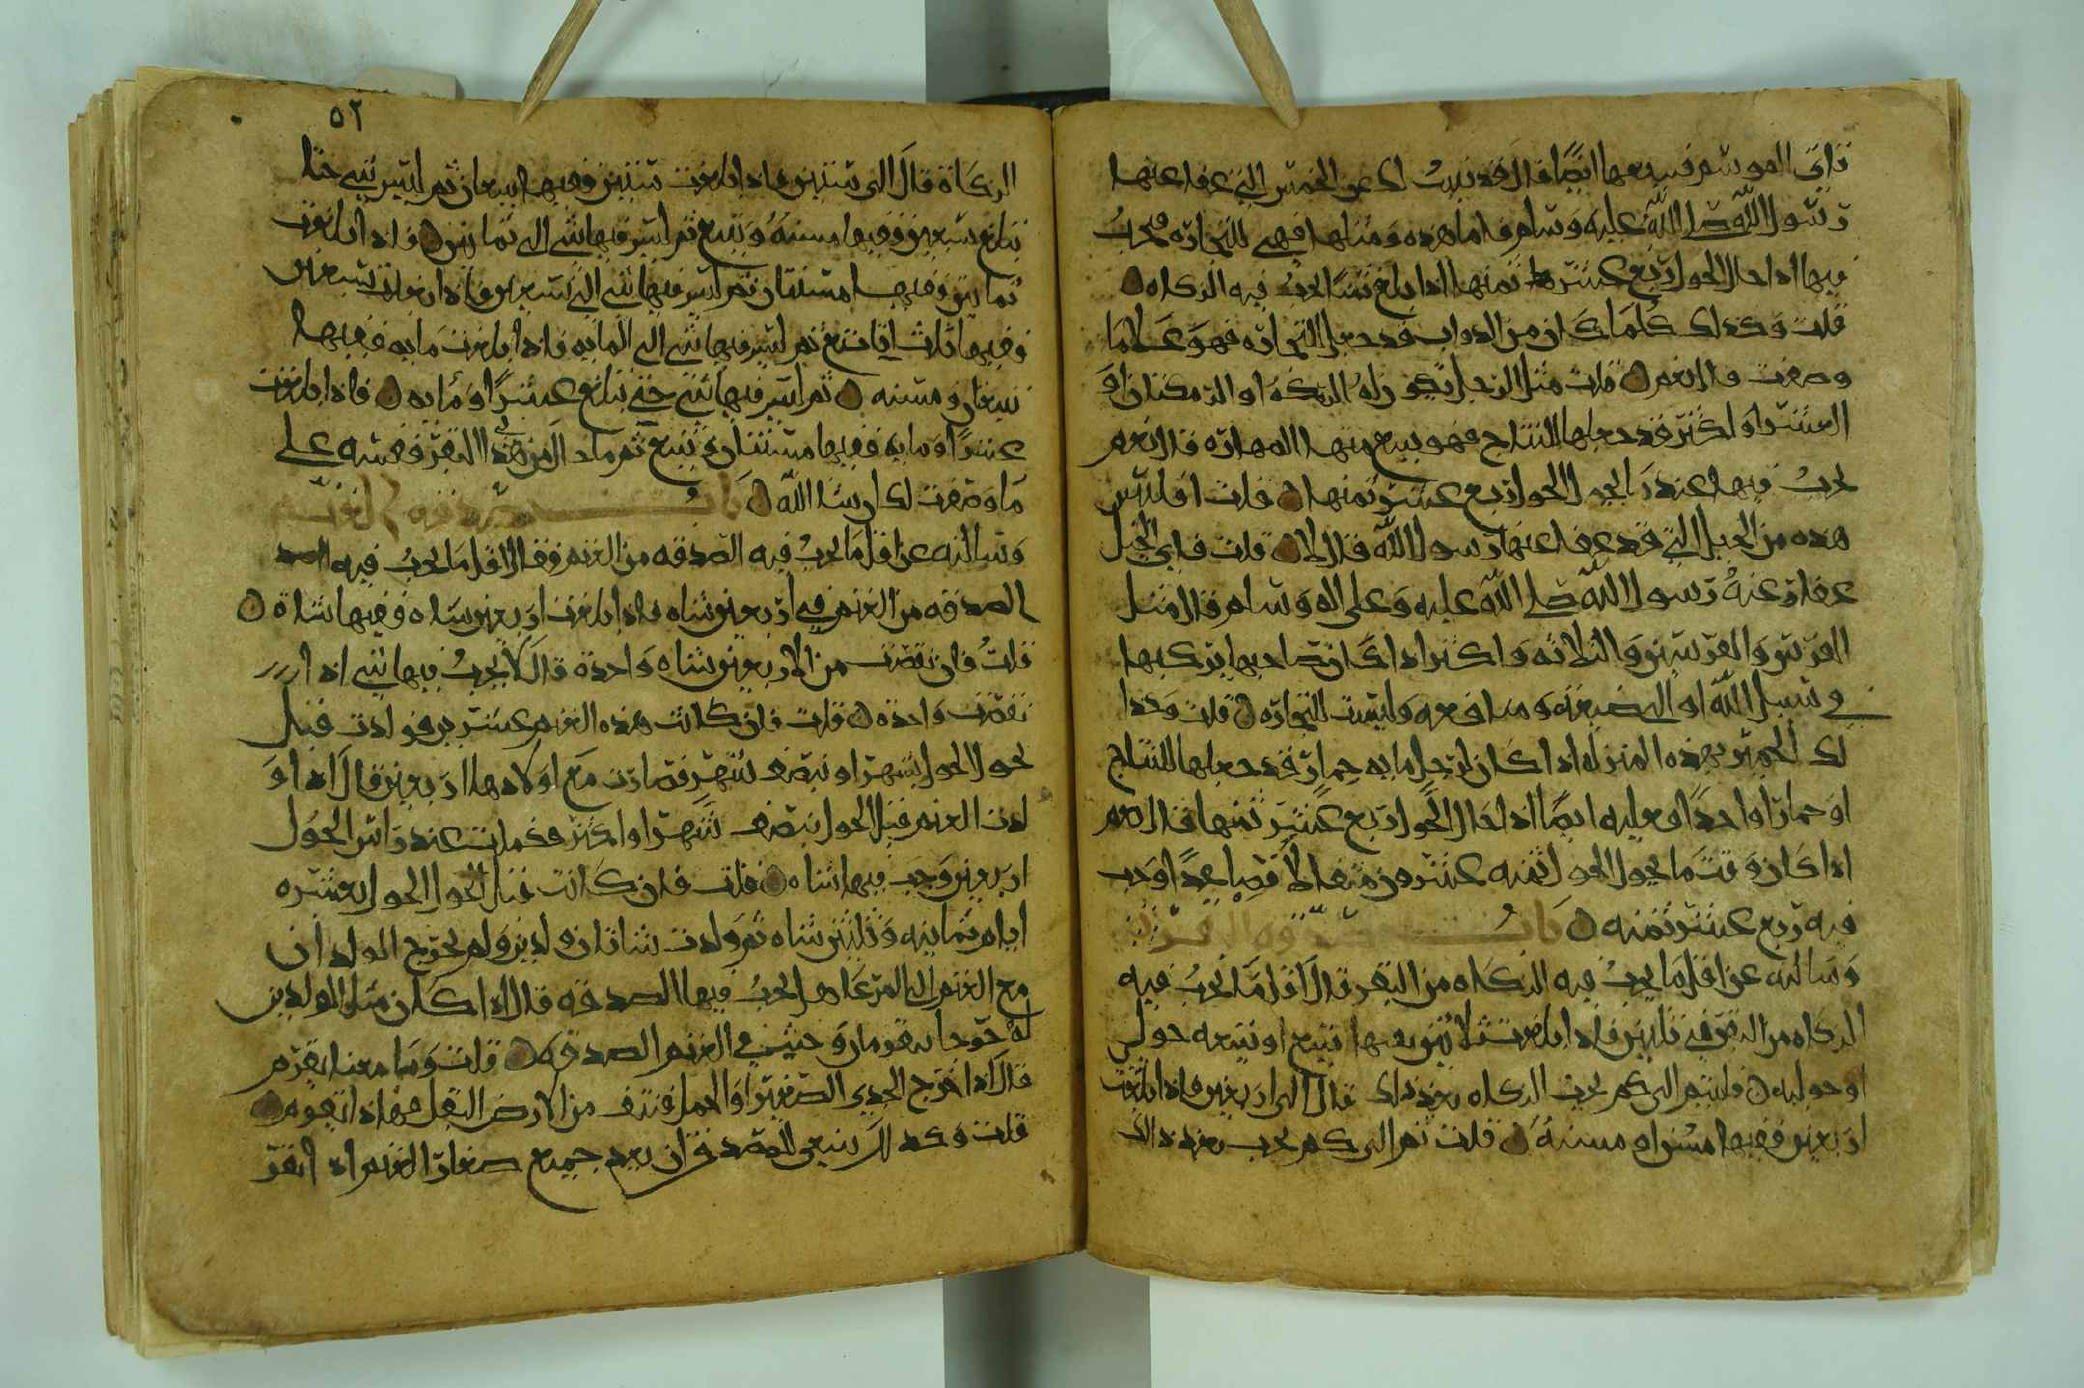 تاتى المو شم فيبيعها ايضًا قال قد نبيت لك عن الخمس التي عفا عنها
رسول الله صلى الله عليه وسلم فاما هذه ومثلها فهي للتجارة يجب
فيها اذا حال الحول ربع عشر ثمنها اذا بلغ ثمنًا يجب فيه الزكاه
قلت وكذلك كلما كان من الدواب قد جعل للتجاره فهو على ما
وصفت قال نعم قلت مثل الرجل تكون له الرمكة او الرمكتان او
العشر او اكثر قد جعلها للنتاج فهو يبيع منها المهاره قال نعم
يجب فيها عند راس الحول ربع عشر ثمنها قلت افليس
هذه من الخيل التي قد عفا عنها رسول الله قال لا قلت فاي الخيل
عفا عنه رسول الله صلى الله عليه وعلى اله وسلم قال مثل
الفرس والفرسين والثلاثه واكثر اذا كان صاحبها يركبها
في سبيل الله او الى ضيعته ومنافعه وليست للتجاره قلت وكذا
لك الحمير بهذه المنزله اذا كان لرجل مايه حمار قد جعلها للنتاج
او حمارا واحدًا فعليه ايضًا اذا حال الحول ربع عشر ثمنها قال نعم
اذا كان وقت ما يحول الحول ثمنه عشرون مثقالا فصاعدًا وجب
فيه ربع عشر ثمنه باب صدقه البقر
وسالته عن اقل ما يجب فيه الزكاه من البقر قال اقل ما يجب فيه
الزكاه من البقر في ثلثين فاذا بلغت ثلاثين ففيها تبيع او تبيعه حولي
او حوليه قلت ثم الى كم يجب الزكاه بعد ذلك قال الى اربعين فاذا بلغت
اربعين ففيها مسن او مسنة قلت ثم الى كم يجب بعد ذلك
٥٢
الزكاة قال الى ستين فاذا بلغت ستين ففيها تبيعان ثم ليس شي حتا
تبلغ سبعين ففيها مسنة وتبيع ثم ليس فيها شي الى ثمانين فاذا بلغت
ثمانين ففيها مسنتان ثم ليس فيها شي الى تسعين فاذا بلغت تسعين
ففيها ثلاث اتابيع ثم ليس فيها شي الى المايه فاذا بلغت مايه ففيها
تبيعان ومسنه ثم ليس فيها شي حتى تبلغ عشرًا ومايه فاذا بلغت
عشرًا ومايه ففيها مسنتان وتبيع ثم ما زاد من هذا البقر فقسه على
ما وصفت لك ان شا الله باب صدقه الغنم
وسالته عن اقل ما يجب فيه الصدقه من الغنم فقال اقل ما يجب فيه
الصدقه من الغنم في اربعين شاه فاذا بلغت اربعين شاه ففيها شاة
قلت فان نقصت من الاربعين شاه واحدة قال لا يجب فيها شي اذا
نقصت واحده قلت فان كانت هذه الغنم عشرين فولدت قبل
يحول الحول بشهر او نصف شهر فصارت مع اولادها اربعين قال اذا و
لدت الغنم قبل الحول بنصف شهر او اكثر فكملت عند راس الحول
اربعين وجب فيها شاه قلت فان كانت قبل الحول بعشره
ايام ثمانيه وثلثين شاه ثم ولدت شاتان ولدين ولم يخرج الولدان
مع الغنم الى المرعا هل يجب فيها الصدقه قال اذا كان مثل الولدين
له خرجا بقرمان وجبت في الغنم الصدقه قلت وما معنا يقرم
قال اذا خرج الجدي الصغير او الحمل فنتف من الارض البقل فهذا تقرمه
قلت وكذلك ينبغي للمصدق ان يعد جميع صغار الغنم اذا تقر